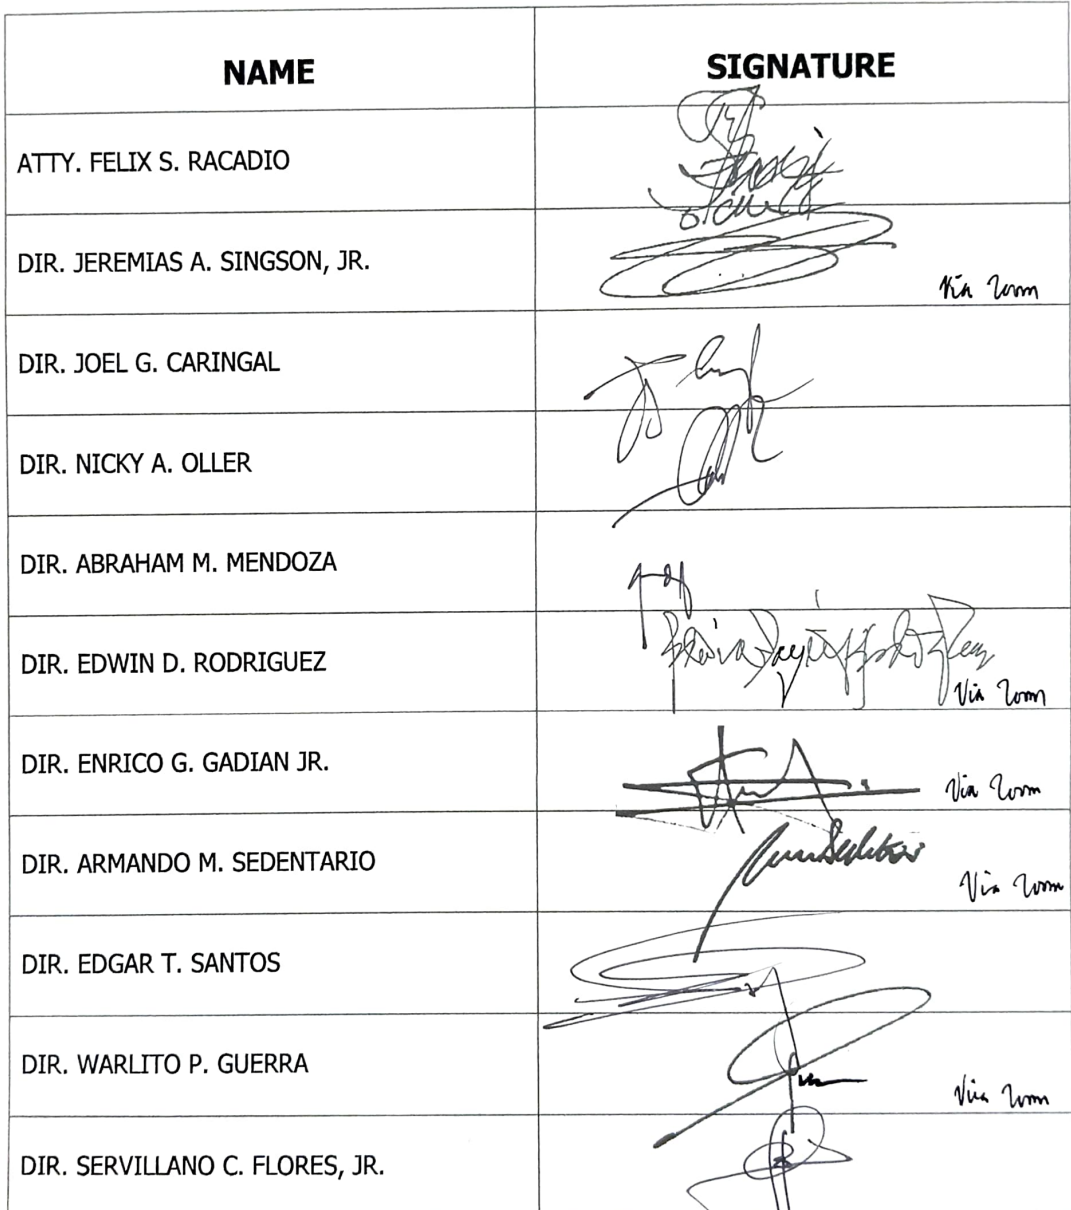 NAME SIGNATURE
ATTY. FELIX S. RACADIO
DIR. JEREMIAS A. SINGSON, JR. Via Zoom
DIR. JOEL G. CARINGAL
DIR. NICKY A. OLLER
DIR. ABRAHAM M. MENDOZA
DIR. EDWIN D. RODRIGUEZ Via Zoom
DIR. ENRICO G. GADIAN JR. Via Zoom
DIR. ARMANDO M. SEDENTARIO Via Zoom
DIR. EDGAR T. SANTOS
DIR. WARLITO P. GUERRA Via Zoom
DIR. SERVILLANO C. FLORES, JR.